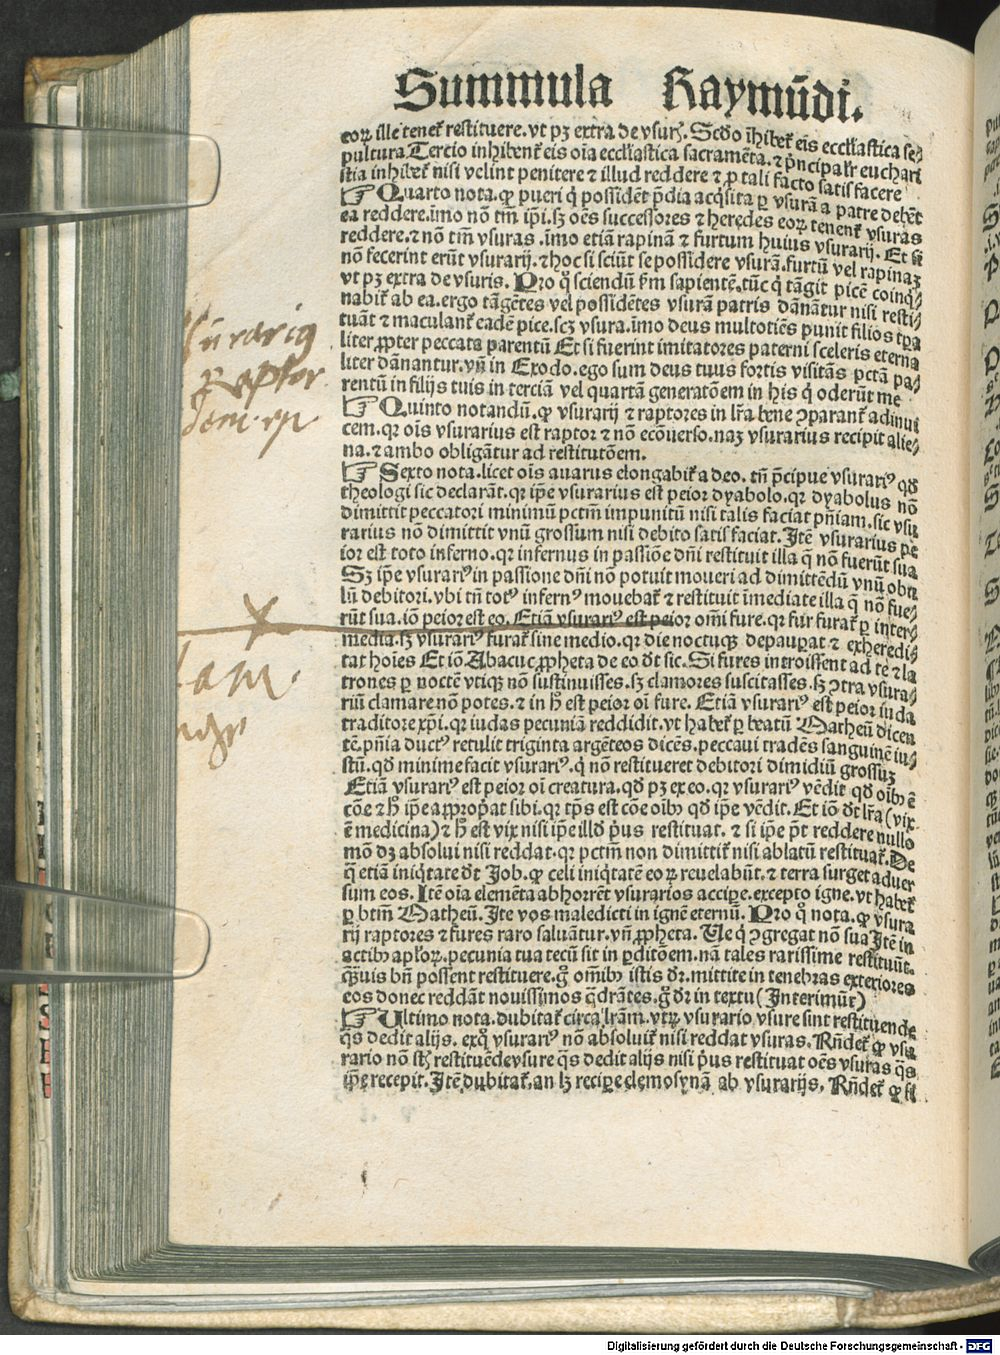 Summula Raymūdi.
eoꝝ ille teneƭ restituere. vt pꝫ extra de vsurꝭ. Scdo īhibeƭ eis eccl̓astica se⸗
pultura. Tercio inhibenƭ eis oīa eccl̓astica sacramēta. ⁊ p̄ncipal̓r euchari
stia inhibeƭ nisi velint penitere ⁊ illud reddere ⁊ ꝓ tali facto satisfacere
☞ Quarto nota. ꝙ pueri q̇ possidēt p̄dia acq̇sita ꝑ vsurā a patre debēt
ea reddere. imo nō tm̄ ip̄i. sꝫ oēs successores ⁊ heredes eoꝝ tenenƭ vsuras
reddere. ⁊ nō tm̄ vsuras. imo etiā rapinā ⁊ furtum huius vsurarij. Et si
nō fecerint erūt vsurarij. ⁊ hoc si sciūt se possidere vsurā. furtū vel rapinaꝫ
vt pꝫ extra de vsuris. Pro quo sciendū ẜm sapientē. tūc q̇ tāgit picē coinq̇⸗
nabiƭ ab ea. ergo tāgētes vel possidētes vsurā patris dānātur nisi resti⸗
tuāt ⁊ maculanƭ eadē pice. scꝫ vsura. imo deus multotiēs punit filios tꝑa
liter ꝓpter peccata parentū Et si fuerint imitatores paterni sceleris eterna
liter dānantur. vn̄ in Exodo. ego sum deus tuus fortis visitās pctā pa⸗
rentū in filijs tuis in terciā vel quartā generatōem in his q̇ oderūt me
☞ Quinto notandū. ꝙ vsurarij ⁊ raptores in lr̄a bene ꝯparanƭ adinui
cem. qꝛ oīs vsurarius est raptor ⁊ nō ecōuerso. naꝫ vsurarius recipit alie⸗
na. ⁊ ambo obligātur ad restitutōem.
☞ Sexto nota. licet oīs auarus elongabiƭ a deo. tn̄ p̄cipue vsurariꝰ qd̓
theologi sic declarāt. qꝛ ip̄e vsurarius est peior dyabolo. qꝛ dyabolus nō
dimittit peccatori minimū pctm̄ impunitū nisi talis faciat pn̄iam. sic vsu
rarius nō dimittit vnū grossum nisi debito satisfaciat. Itē vsurarius pe
ior est toto inferno. qꝛ infernus in passiōe dn̄i restituit illa q̄ nō fuerūt sua
Sꝫ ip̄e vsurariꝰ in passione dn̄i nō potuit moueri ad dimittēdū vnū obu
lū debitori. vbi tn̄ totꝰ infernꝰ mouebaƭ ⁊ restituit īmediate illa q̄ nō fue⸗
rūt sua. iō peior est eo. Etiā vsurariꝰ est peior om̄i fure. qꝛ fur furaƭ ꝑ inter⸗
media. sꝫ vsurariꝰ furaƭ sine medio. qꝛ die noctuqꝫ depauꝑat ⁊ exheredi⸗
tat hoīes Et iō. Abacuc ꝓpheta de eo dt̄ sic. Si fures introissent ad te ⁊ la
trones ꝑ noctē vtiqꝫ nō sustinuisses. sꝫ clamores suscitasses. sꝫ ꝯtra vsura⸗
riū clamare nō potes. ⁊ in hͦ est peior oī fure. Etiā vsurariꝰ est peior iuda
traditore xp̄i. qꝛ iudas pecuniā reddidit. vt habeƭ ꝑ beatū Matheū dicen
tē. pn̄ia ductꝰ retulit triginta argēteos dicēs. peccaui tradēs sanguinē iu⸗
stū. qd̓ minime facit vsurariꝰ. q̇ nō restitueret debitori dimidiū grossuꝫ
Etiā vsurariꝰ est peior oī creatura. qd̓ pꝫ ex eo. qꝛ vsurariꝰ vēdit qd̓ oībꝰ ē
cōe ⁊ hͦ ip̄e aꝓpropat sibi. qꝛ tp̄s est cōe oībꝰ qd̓ ip̄e vēdit. Et iō dt̄ lr̄a (vix
ē medicina) ⁊ hͦ est vix nisi ip̄e illd̓ p̓us restituat. ⁊ si ip̄e pt̄ reddere nullo
mō dꝫ absolui nisi reddat. qꝛ pctm̄ non dimittiƭ nisi ablatū restituaƭ. De
q̄ etiā iniq̇tate dt̄ Job. ꝙ celi iniq̇tatē eoꝝ reuelabūt. ⁊ terra surget aduer
sum eos. Itē oīa elemēta abhorrēt vsurarios acciꝑe. excepto igne. vt habeƭ
ꝑ btm̄ Matheū. Ite vos maledicti in ignē eternū. Pro quo nota. ꝙ vsura
rij raptores ⁊ fures raro saluātur. vn̄ ꝓpheta. Ue q̇ ꝯgregat nō sua Itē in
actibꝰ apl̓oꝝ. pecunia tua tecū sit in ꝑditōem. nā tales rarissime restituūt.
qꝫuis bn̄ possent restituere. gͦ om̄ibꝰ istis dr̄. mittite in tenebras exteriores
eos donec reddāt nouissimos q̄drātes. gͦ dr̄ in textu (Interimūt)
☞ Ultimo nota. dubitaƭ circa lr̄am. vtꝝ vsurario vsure sint restituende
q̄s dedit alijs. ex quo vsurariꝰ nō absoluiƭ nisi reddat vsuras. Rn̄deƭ ꝙ vsu
rario nō sūt restituēde vsure q̄s dedit alijs nisi p̓us restituat oēs vsuras q̄s
ip̄e recepit. Itē dubitaƭ. an lꝫ reciꝑe elemosynā ab vsurarijs. Rn̄deƭ ꝙ si
Digitalisierung gefördert durch die Deutsche Forschungsgemeinschaft - DFG